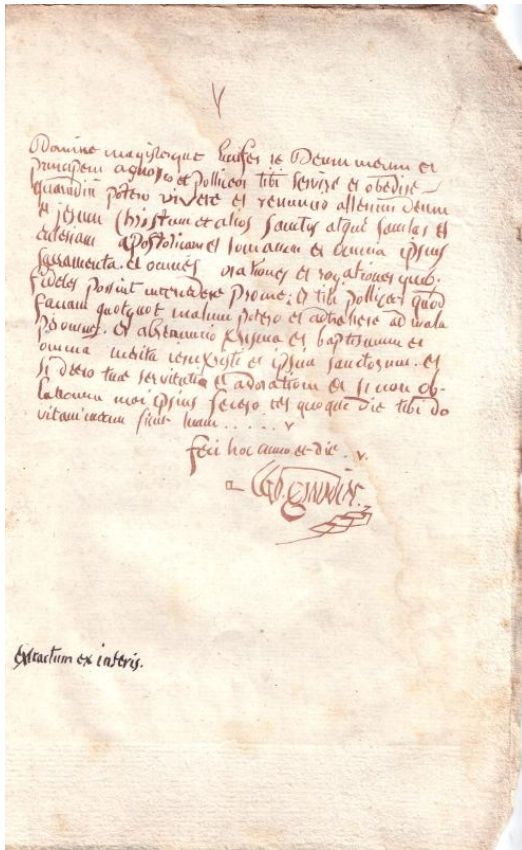 V
Domine magisterque Lucifer te Deum meum et
principem agnosco et polliceor tibi servire et obedire
quamdiu potero vivere et renuncio alterum Deum
et jesum Christum et alios sanctos atque sanctas et
ecclesiam apostolicam et romanam et omnia ipsius
sacramenta et omnes orationes et rogationes quib.
fideles possint intercedere pro me. et tibi polliceor quod
faciam quotquot malum potero et adtrahere ad mala
p omnes. et abrenuncio et baptismum et
omnia merita et ipsius sanctorum. et
si deero tuae servitutia et adorationi et si non ob-
lationem moi ipsius fecero ter quoque die tibi do
vitam meam sicut tuam . . . . . v
feci hoc anno et die . v.
extractum ex inferis.